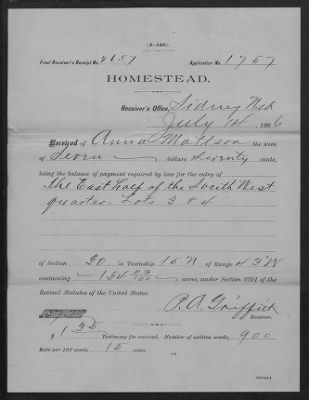 (4—140.)
Final Receiver's Receipt No. 2157 Application No. 1757
HOMESTEAD.
Receiver's Office, Sidney Neb
July 14, 1896
Received of Anna Mattson the sum
of Seven dollars Seventy cents,
being the balance of payment required by law for the entry of
The East half of the South West
quarter. Lots 3 & 4
of Section 30 in Township 15 N of Range 43 W
containing 154 acres, under Section 2291 of the
Revised Statutes of the United States.
P. A. Griffith
Receiver.
$1.35 Testimony fee received. Number of written words, 900
Rate per 100 words 15 cents.